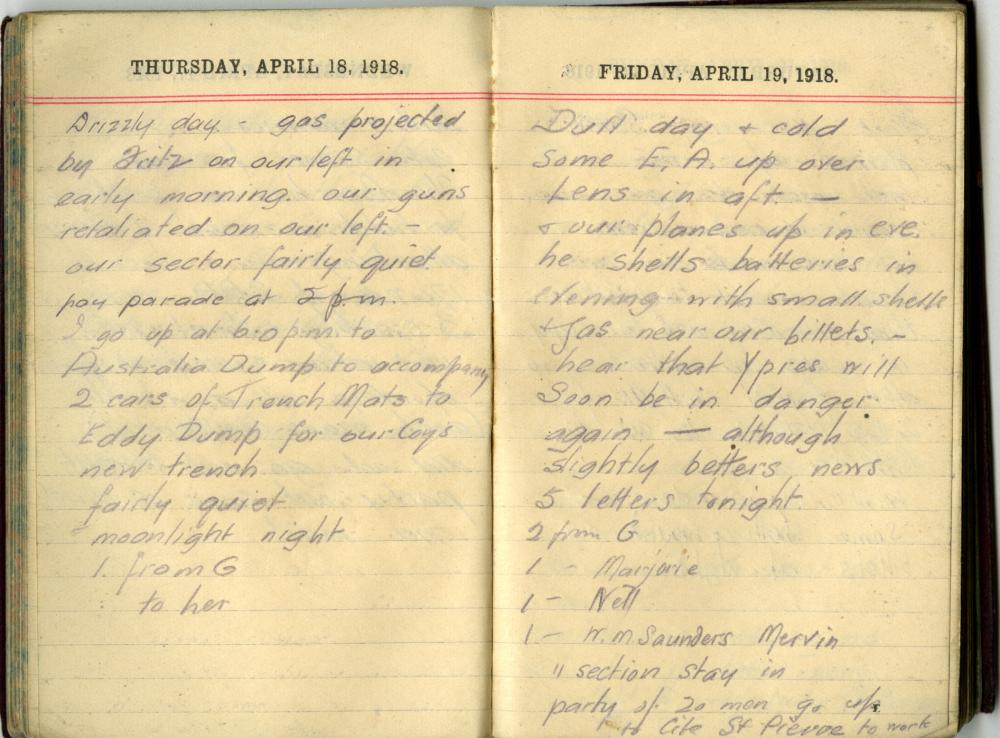 THURSDAY, APRIL 18, 1918.
Drizzly day - gas projected
by Fritz on our left in
early morning. our guns
retaliated on our left. -
our sector fairly quiet.
pay parade at 2 p.m.
I go up at 6:0 pm to
Australia Dump to accompany
2 cars of Trench Mats to
Eddy Dump for our Coy's
new trench.
fairly quiet
moonlight night.
1. from G
to her
FRIDAY, APRIL 19, 1918.
Dull day & cold
Some E.A. up over
Lens in aft. —
& our planes up in eve.
he shells batteries in
evening with small shells
& gas near our billets. -
hear that Ypres will
Soon be in danger
again — although
slightly betters news.
5 letters tonight.
2 from G
1 - Marjorie
1 - Nell
1 - W.M. Saunders Mervin
" section stay in
party of 20 men go up
to Cite St Pierre to work